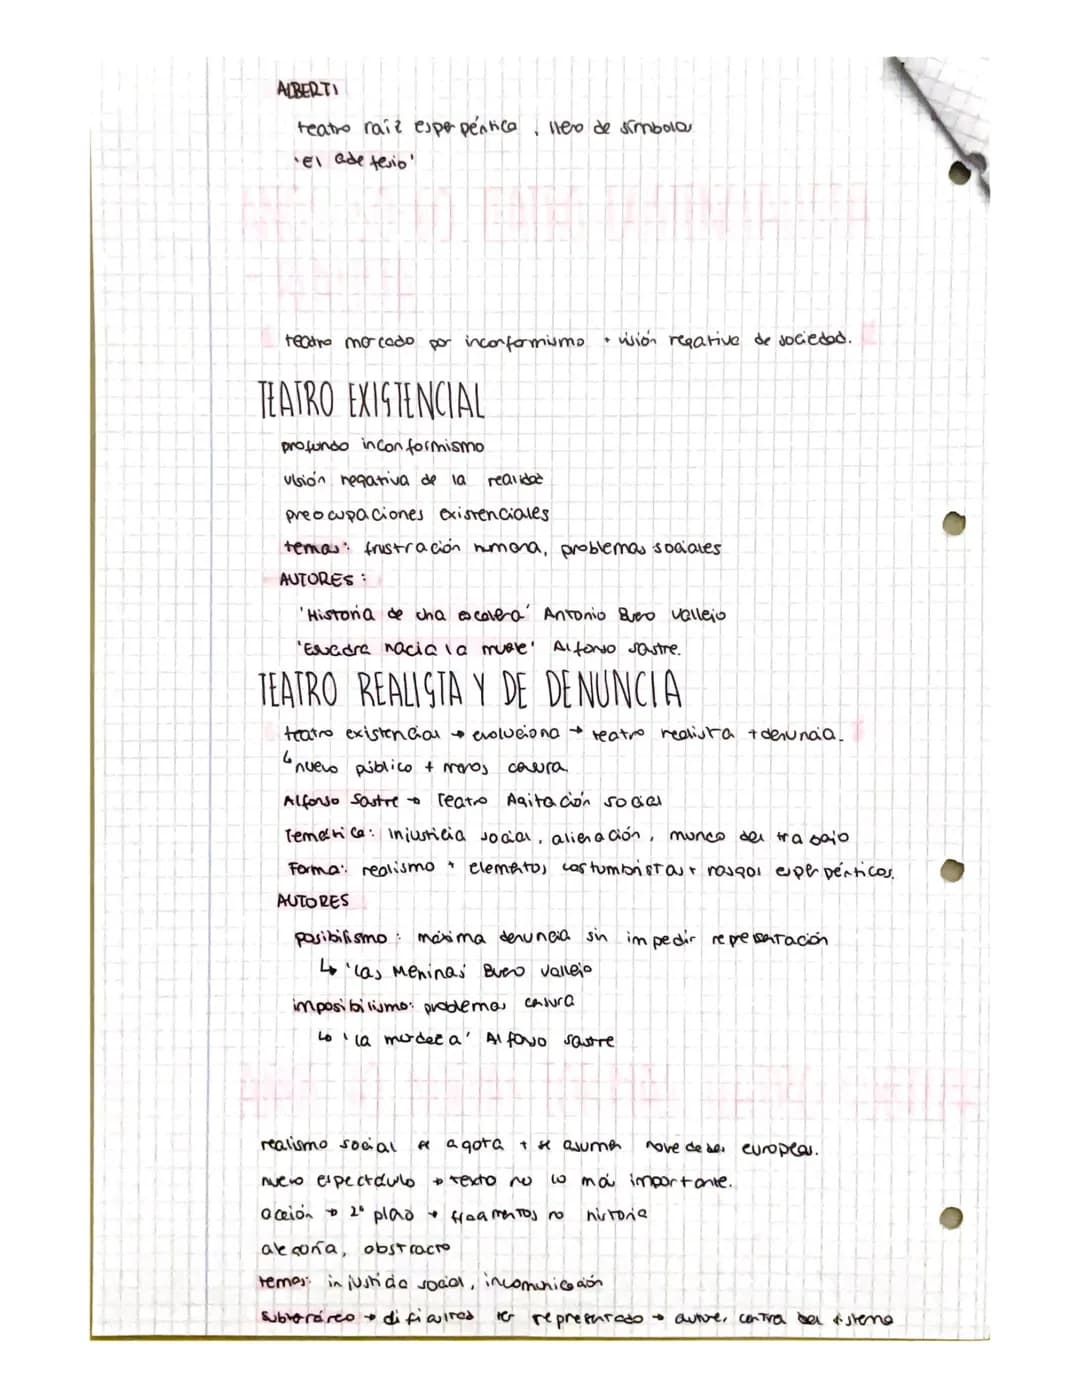 ALBERTI
teatro raíz esperpéntica, lleno de símbolos
'El adefesio'
teatro marcado por inconformismo + visión negativa de sociedad.
TEATRO EXISTENCIAL
profundo inconformismo
visión negativa de la realidad
preocupaciones existenciales
temas: frustración humana, problemas sociales
AUTORES:
'Historia de una escalera' Antonio Buero Vallejo
'Escuadra hacia la muerte' Alfonso Sastre.
TEATRO REALISTA Y DE DENUNCIA
teatro existencial → evoluciona → teatro realista + denuncia.
↳ nuevo público + menos censura.
Alfonso Sastre → Teatro Agitación social
Temática: injusticia social, alienación, mundo del trabajo
Forma: realismo + elementos costumbristas + rasgos esperpénticos.
AUTORES
posibilismo: máxima denuncia sin impedir representación
↳ 'Las Meninas' Buero Vallejo
imposibilismo: problemas censura
↳ 'la mordaza' Alfonso Sastre
realismo social se agota + se asumen novedades europeas.
nuevo espectáculo → texto no lo más importante.
acción → 2º plano → fragmentos no historia
alegoría, abstracto
temas: injusticia social, incomunicación
Subterráneo → dificultad ser representado → autores contra del sistema